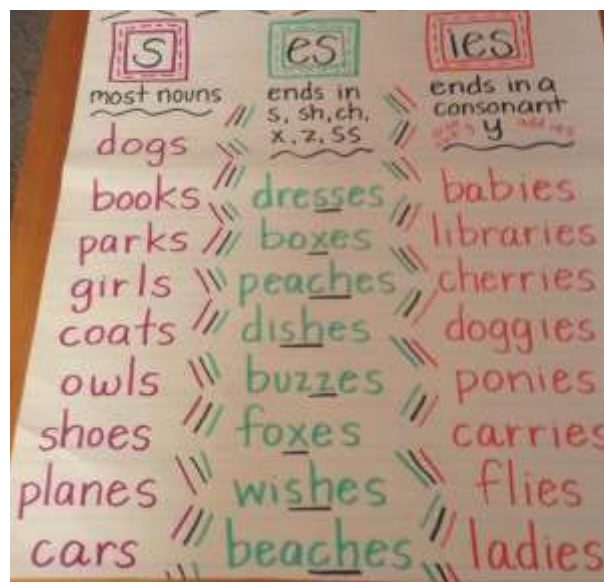 s
most nouns
dogs
books
parks
girls
coats
owls
shoes
planes
cars
es
ends in
s, sh, ch,
x, z, ss
dresses
boxes
peaches
dishes
buzzes
foxes
wishes
beaches
ies
ends in a
consonant
y
babies
libraries
cherries
doggies
ponies
carries
flies
ladies